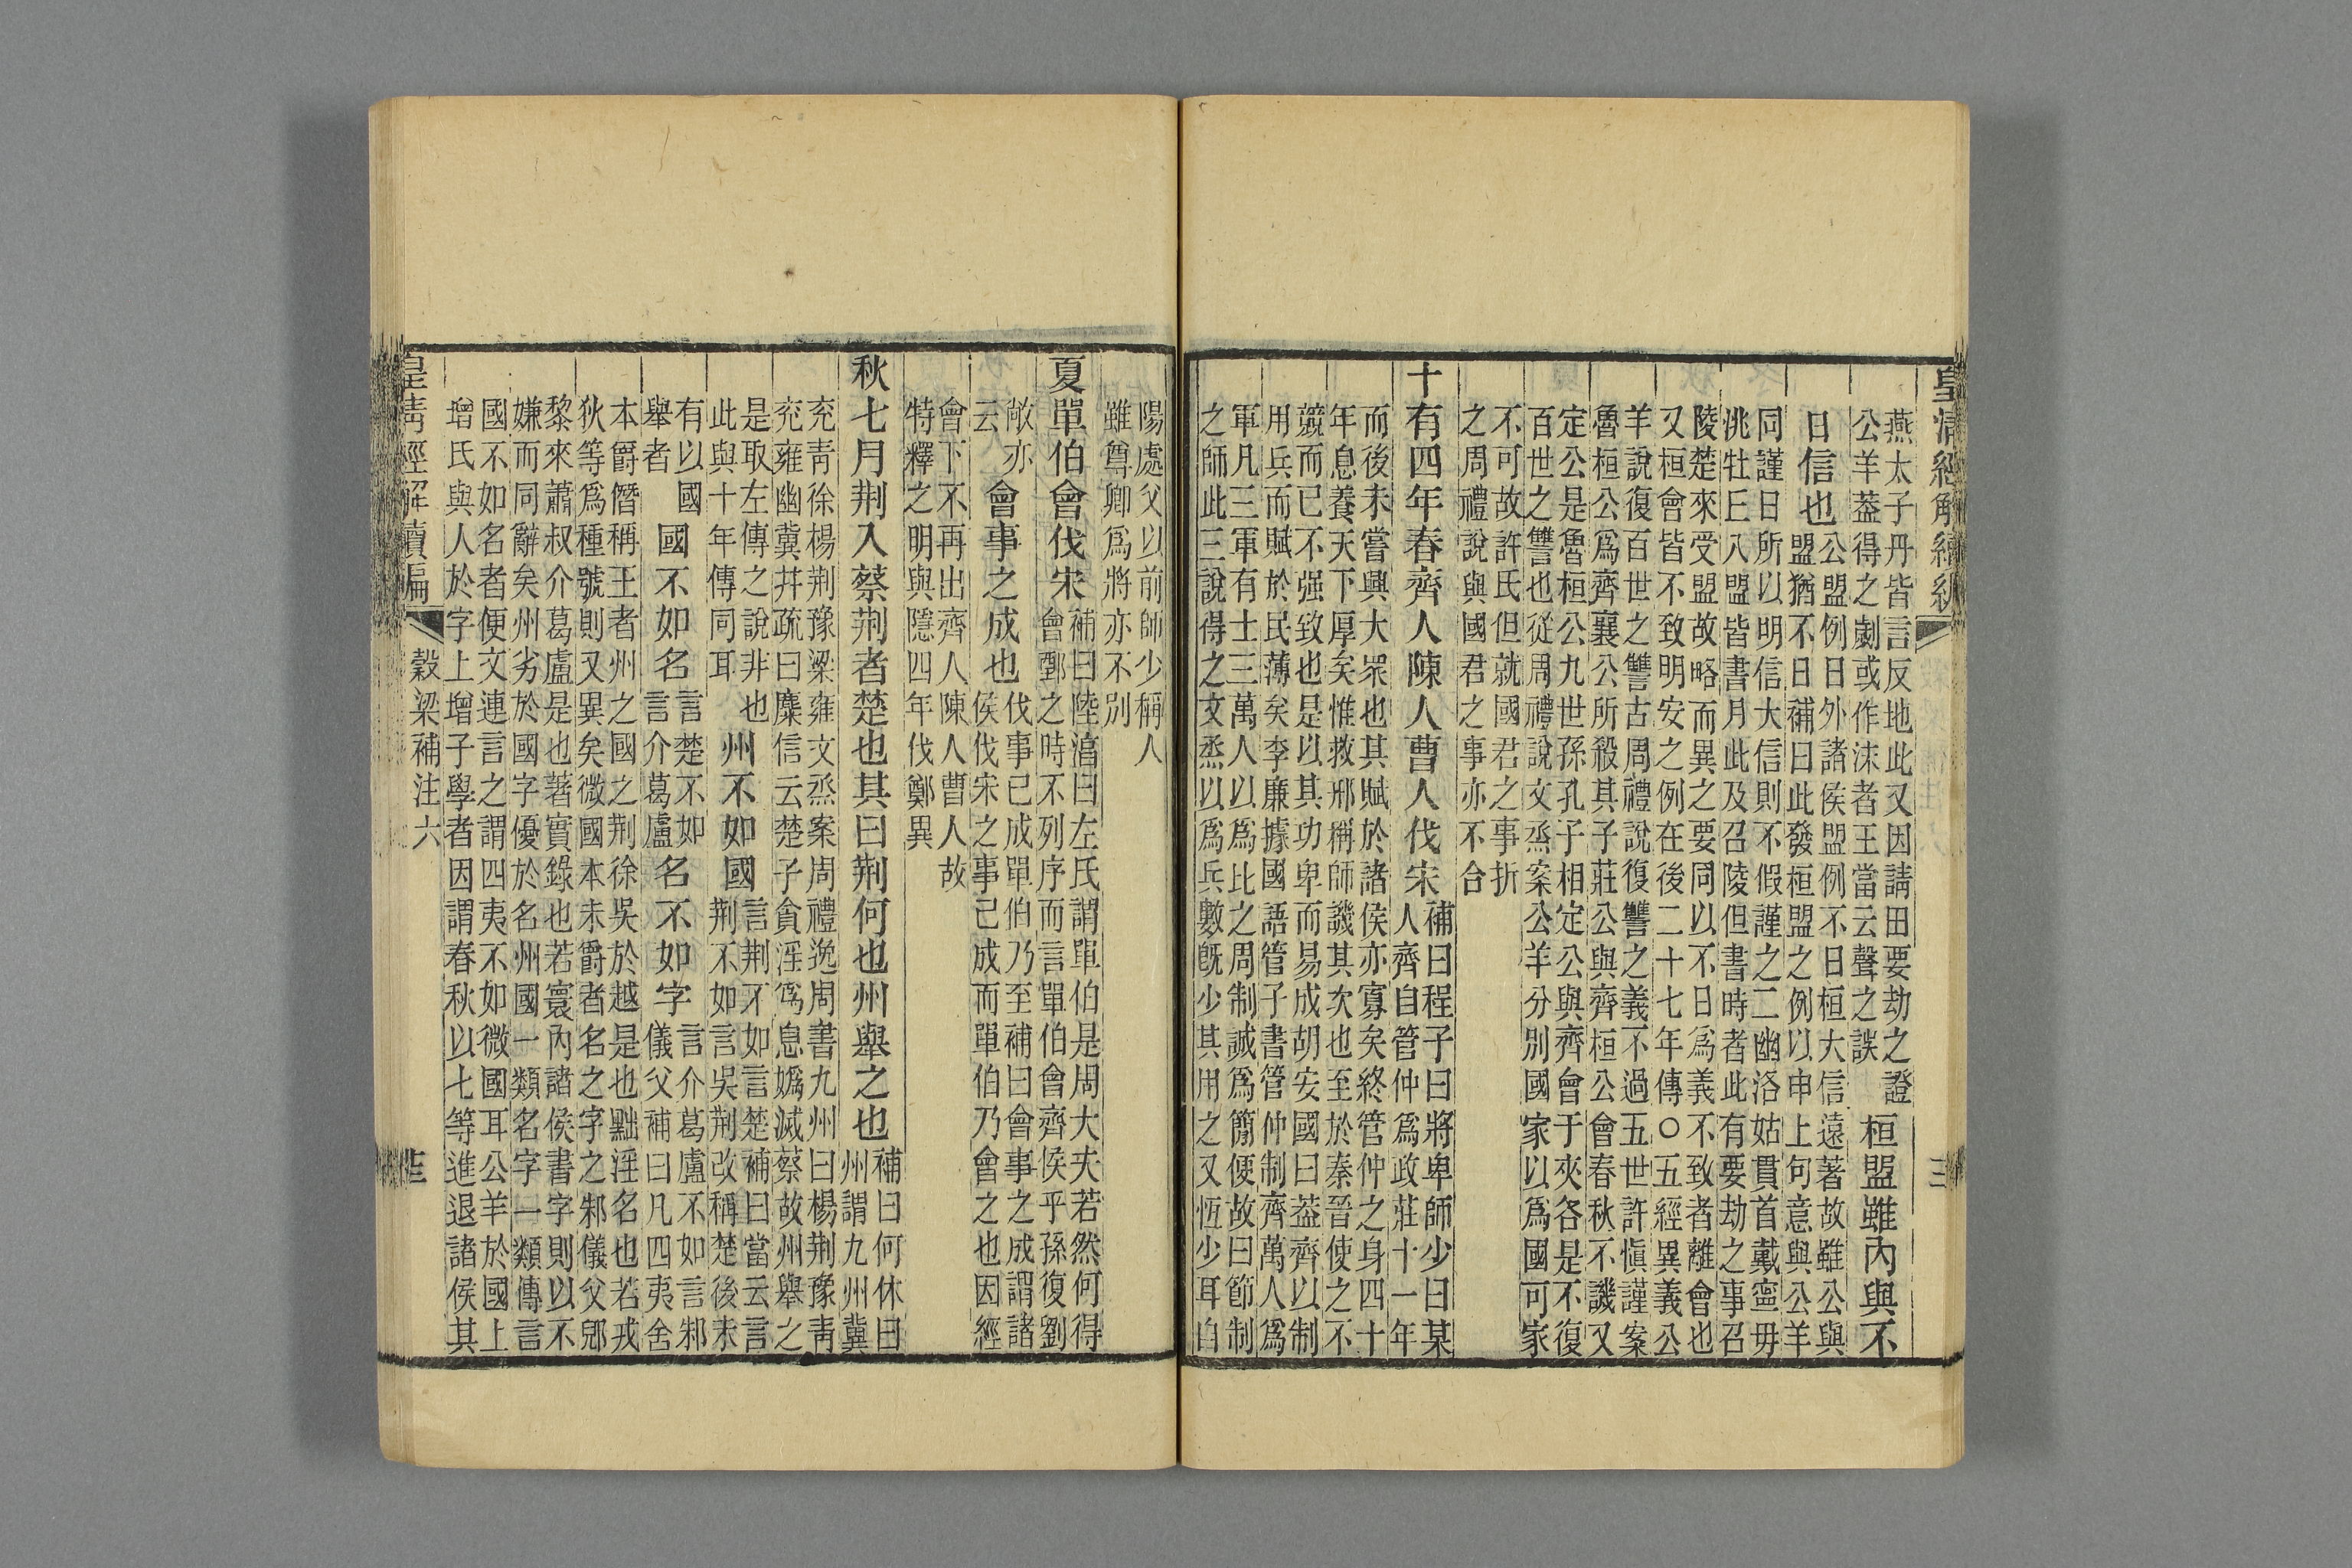 皇清經解續編
燕太子丹皆言反地此又因請田要劫之證
公羊葢得之劌或作沬者王當云聲之誤
桓盟雖內與不
日信也
公盟例日外諸侯盟例不日桓大信遠著故雖公與
盟猶不日補曰此發桓盟之例以申上句意與公羊
同謹日所以明信大信則不假謹之二幽洛姑貫首戴甯毋
洮牡丘八盟皆書月此及召陵但書時者此有要劫之事召
陵楚來受盟故略而異之要同以不日爲義不致者離會也
又桓會皆不致明安之例在後二十七年傳○五經異義公
羊說復百世之讐古周禮說復讐之義不過五世許愼謹案
魯桓公爲齊襄公所殺其子莊公與齊桓公會春秋不譏又
定公是魯桓公九世孫孔子相定公與齊會于夾谷是不復
百世之讐也從周禮說文烝案公羊分別國家以爲國可家
不可故許氏但就國君之事折
之周禮說與國君之事亦不合
十有四年春齊人陳人曹人伐宋
補曰程子曰將卑師少曰某
人齊自管仲爲政莊十一年
而後未嘗興大眾也其賦於諸侯亦寡矣終管仲之身四十
年息養天下厚矣惟救邢稱師譏其次也至於秦晉使之不
競而已不强致也是以其功卑而易成胡安國曰葢齊以制
用兵而賦於民薄矣李廉據國語管子書管仲制齊萬人爲
軍凡三軍有士三萬人以爲比之周制誠爲簡便故曰節制
之師此三說得之文烝以爲兵數旣少其用之又恆少耳自
陽處父以前師少稱人
雖尊卿爲將亦不別
夏單伯會伐宋
補曰陸淳曰左氏謂單伯是周大夫若然何得
會鄄之時不列序而言單伯會齊侯乎孫復劉
敞亦
云
會事之成也
伐事已成單伯乃至補曰會事之成謂諸
侯伐宋之事已成而單伯乃會之也因經
會下不再出齊人陳人曹人故
特釋之明與隱四年伐鄭異
秋七月荆入蔡荆者楚也其曰荆何也州舉之也
補曰何休曰
州謂九州冀
兖靑徐楊荆豫梁雍文烝案周禮逸周書九州曰楊荆豫靑
兖雍幽冀并疏曰麋信云楚子貪淫爲息嬀滅蔡故州舉之
是取左傳之說非也
此與十年傳同耳
州不如國
言荆不如言楚補曰當云言
荆不如言吳荆改稱楚後未
有以國
舉者
國不如名
言楚不如
言介葛盧
名不如字
言介葛盧不如言邾
儀父補曰凡四夷舍
本爵僭稱王者州之國之荆徐吳於越是也黜淫名也若戎
狄等爲種號則又異矣微國本未爵者名之字之邾儀父郳
黎來蕭叔介葛盧是也著實錄也若寰內諸侯書字則以不
嫌而同辭矣州劣於國字優於名州國一類名字一類傳言
國不如名者便文連言之謂四夷不如微國耳公羊於國上
增氏與人於字上增子學者因謂春秋以七等進退諸侯其
皇淸經解續編
穀梁補注六